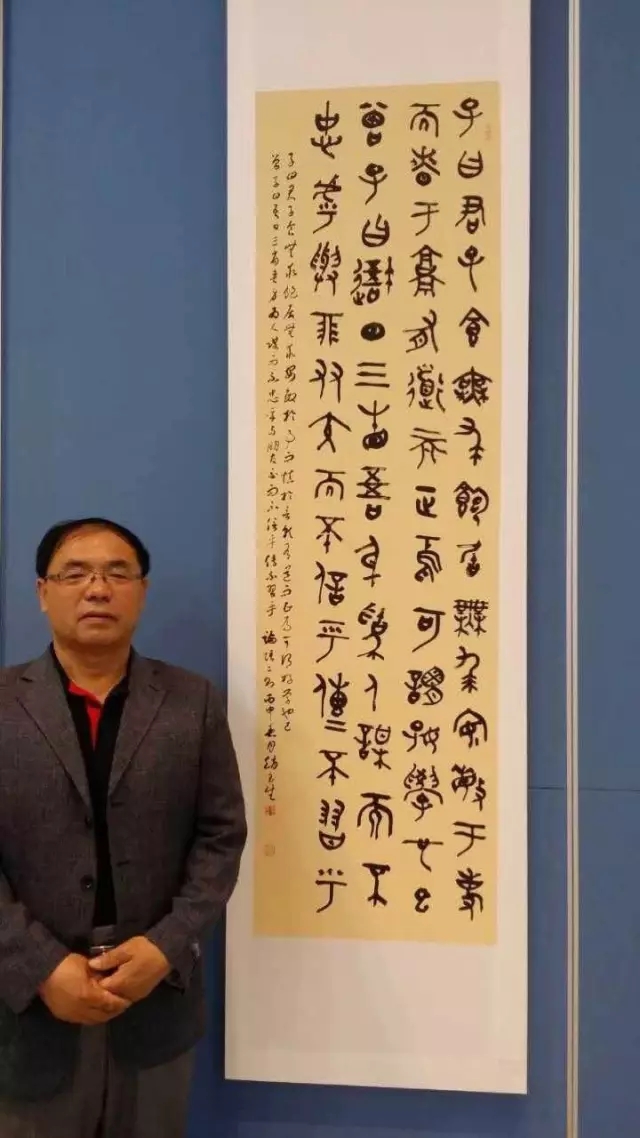 子曰君子食無求飽居無求安敏于事
而慎于就有道而正焉可謂好學也已
曾子曰吾日三省吾身為人謀而不
忠乎與朋友交而不信乎傳不習乎
子曰君子食無求飽居無求安敏於事而慎於言就有道而正焉可謂好學也已
曾子曰吾日三省吾身為人謀而不忠乎與朋友交而不信乎傳不習乎 論語二則 丙申